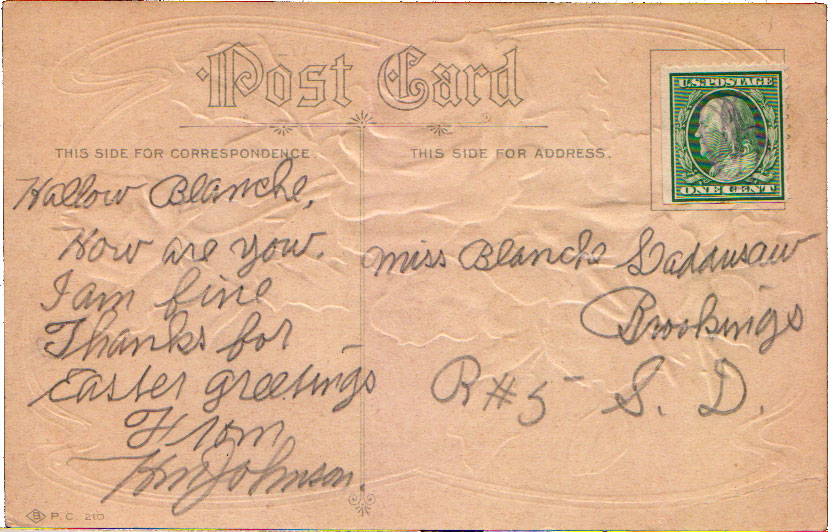 Post Card
U.S. POSTAGE
ONE CENT
THIS SIDE FOR CORRESPONDENCE.
THIS SIDE FOR ADDRESS.
Hallow Blanche,
How are you.
I am fine
Thanks for
Easter greetings
From
Johnson.
Miss Blanche
Brookings
R#5 S. D.
B P. C. 210